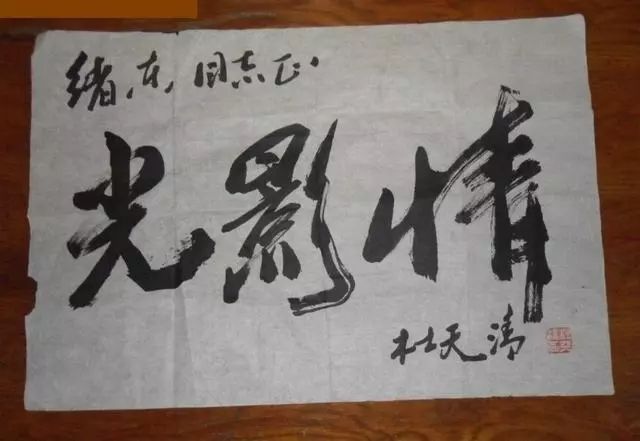 绪东同志正
光影情
杜天清